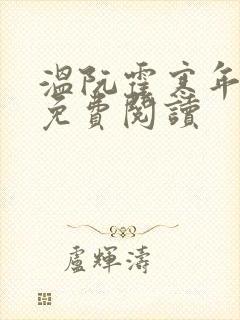 溫阮霍寒年
免費閱讀
盧輝濤